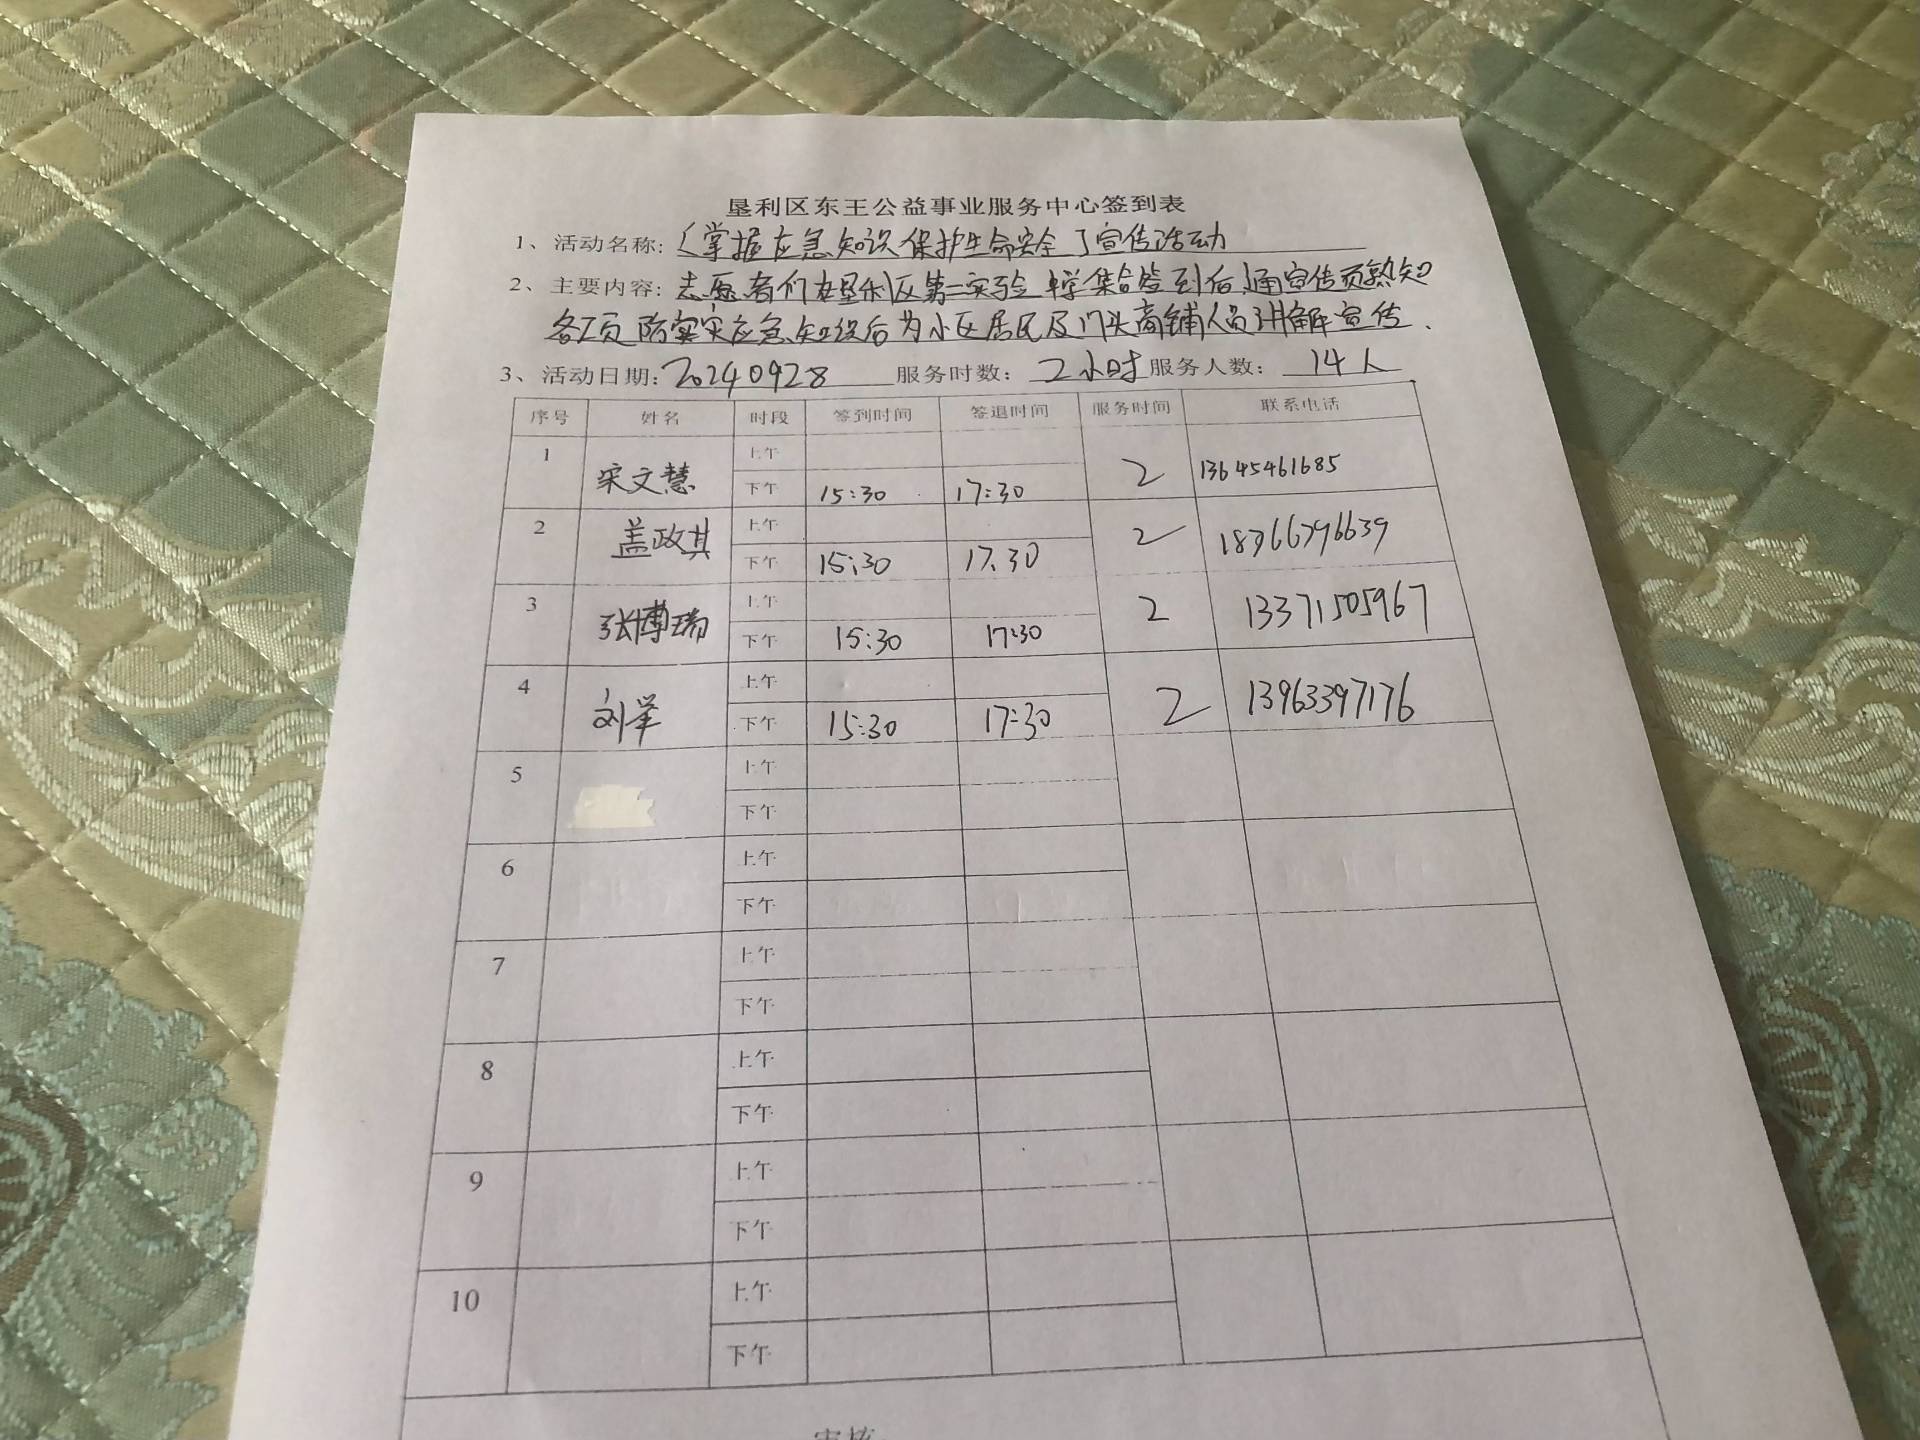 垦利区东王公益事业服务中心签到表
1、活动名称:《掌握应急知识保护生命安全》宣传活动
2、主要内容:志愿者们在垦利区第二实验中学集合签到后,通宣传员熟知
各项防灾应急知识后为小区居民及门头商铺人员讲解宣传.
3、活动日期:20240928 服务时数: 2小时 服务人数: 14人
序号 姓名 时段 签到时间 签退时间 服务时间 联系电话
1 宋文慧 上午
下午 15:30 17:30 2 13645461685
2 盖政其 上午
下午 15:30 17.30 2 18366796639
3 张博瑞 上午
下午 15:30 17:30 2 13371505967
4 上午
刘 下午 15:30 17:30 2 13963397176
5 上午
下午
6 上午
下午
7 上午
下午
8 上午
下午
9 上午
下午
10 上午
下午
审核